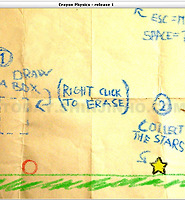 Crayon Physics - release 1
ESC = M
SPACE =
1
DRAW
A BOX
(RIGHT CLICK
TO ERASE)
2
COLLECT
THE STARS